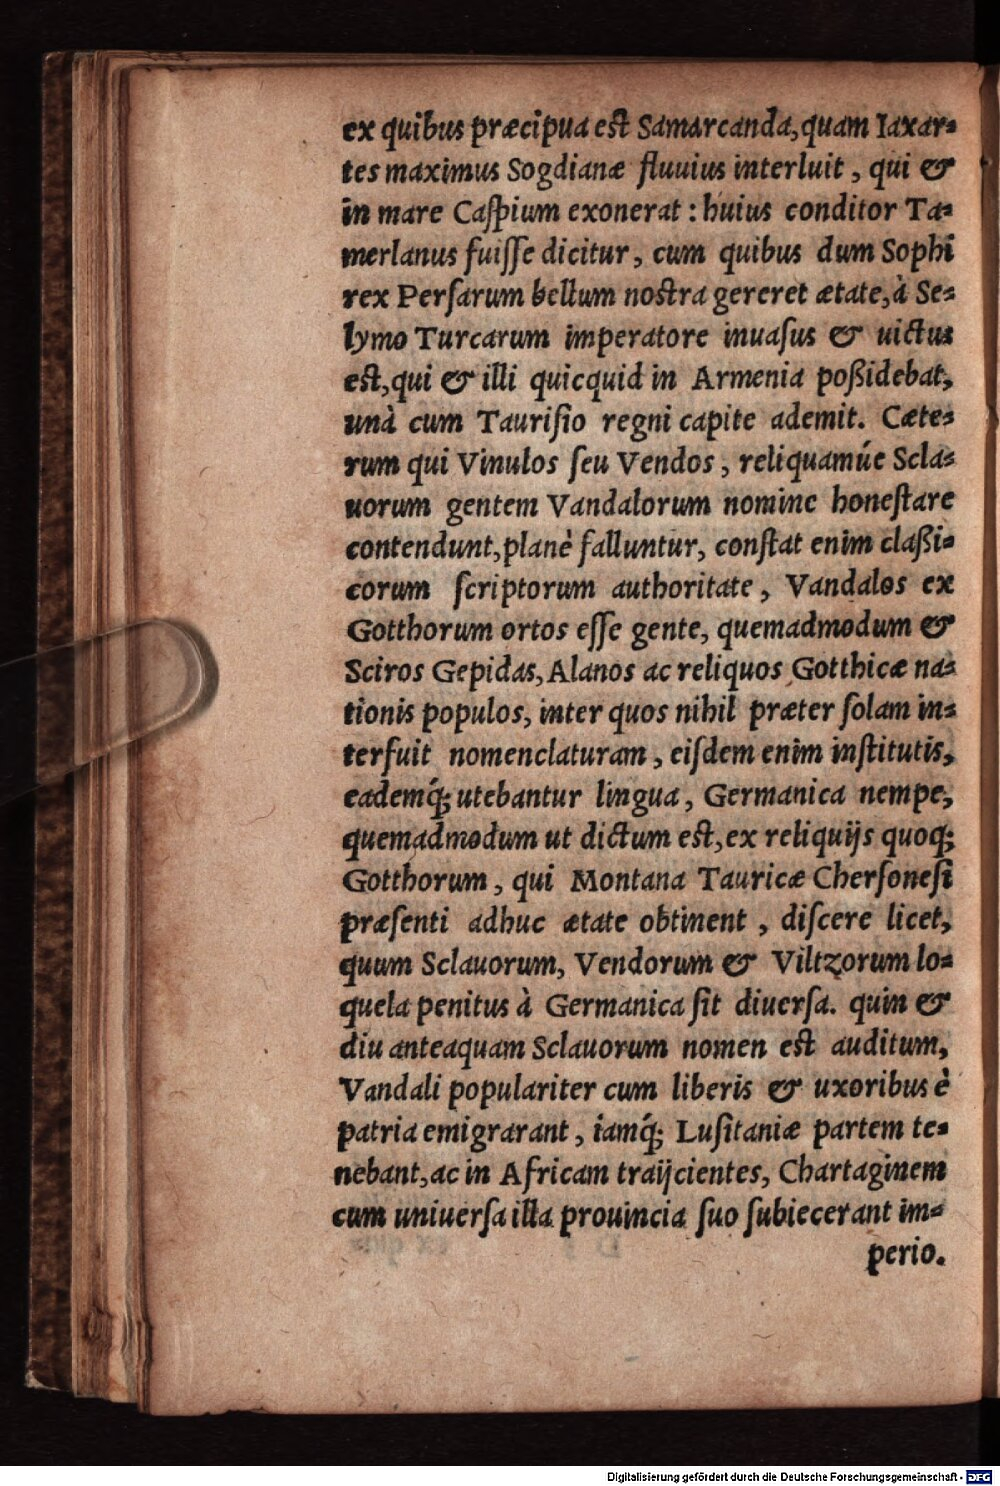 ex quibus præcipua est Samarcanda, quam Iaxar-
tes maximus Sogdianæ fluuius interluit, qui &
in mare Caſpium exonerat : huius conditor Ta-
merlanus fuiſſe dicitur, cum quibus dum Sophi
rex Perſarum bellum noſtra gereret ætate, à Se-
lymo Turcarum imperatore inuaſus & uictus
eſt, qui & illi quicquid in Armenia poßidebat,
unà cum Tauriſio regni capite ademit. Cæte-
rum qui Vinulos ſeu Vendos, reliquamúe Scla-
uorum gentem Vandalorum nomine honeſtare
contendunt, planè falluntur, conſtat enim claßi-
corum ſcriptorum authoritate, Vandalos ex
Gotthorum ortos eſſe gente, quemadmodum &
Sciros Gepidas, Alanos ac reliquos Gotthicæ na-
tionis populos, inter quos nihil præter ſolam in-
terfuit nomenclaturam, eiſdem enim inſtitutis,
eademq́; utebantur lingua, Germanica nempe,
quemadmodum ut dictum eſt, ex reliquijs quoq;
Gotthorum, qui Montana Tauricæ Cherſoneſi
præſenti adhuc ætate obtinent, diſcere licet,
quum Sclauorum, Vendorum & Viltzorum lo-
quela penitus à Germanica ſit diuerſa. quin &
diu anteaquam Sclauorum nomen eſt auditum,
Vandali populariter cum liberis & uxoribus è
patria emigrarant, iamq́; Luſitaniæ partem te-
nebant, ac in Africam traijcientes, Chartaginem
cum uniuerſa illa prouincia ſuo ſubiecerant im-
perio.
Digitalisierung gefördert durch die Deutsche Forschungsgemeinschaft - DFG